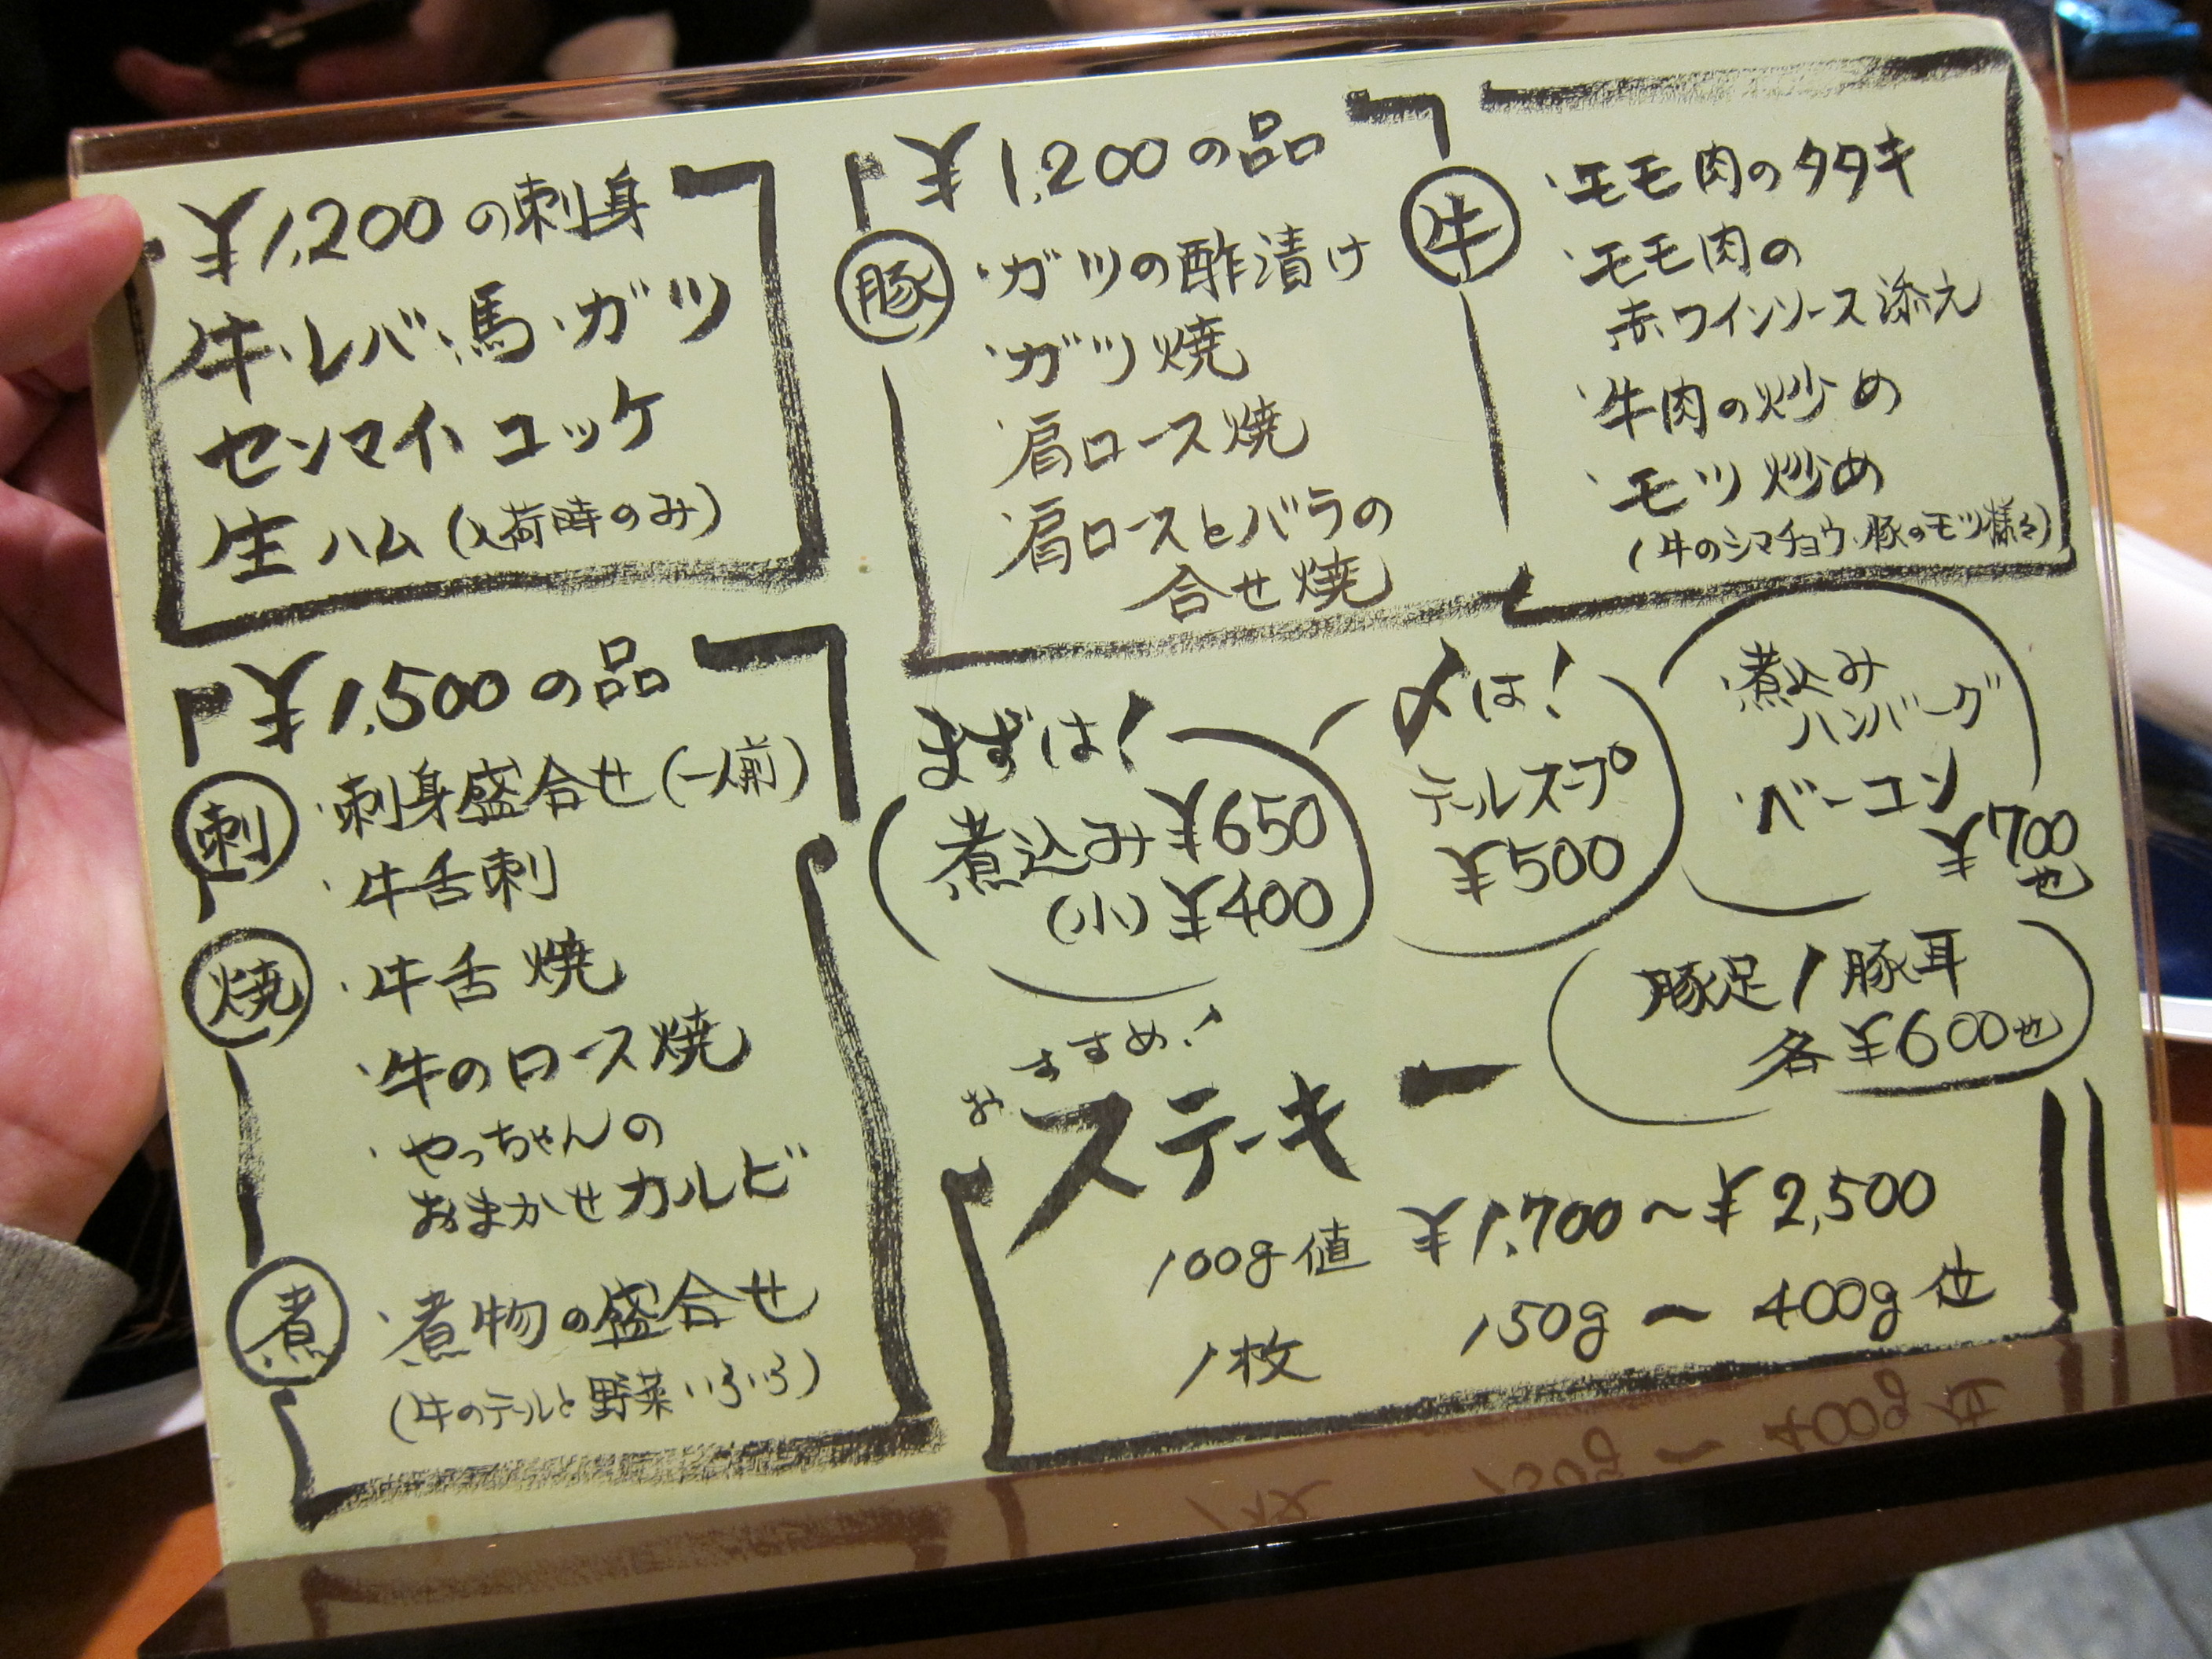 ¥1,200の刺身
牛・レバ・馬・ガツ
センマイ、ユッケ
生ハム(入荷時のみ)
¥1,200の品
豚
・ガツの酢漬け
・ガツ焼
・肩ロース焼
・肩ロースとバラの
合せ焼
牛
・モモ肉のタタキ
・モモ肉の
赤ワインソース添え
・牛肉の炒め
・モツ炒め
(牛のシマチョウ、豚のモツ様々)
¥1,500の品
刺
・刺身盛合せ(一人前)
・牛舌刺
焼
・牛舌焼
・牛のロース焼
・やっちゃんの
おまかせカルビ
煮
・煮物の盛合せ
(牛のテールと野菜いろいろ)
まずは!
煮込み¥650
(小)¥400
〆は!
テールスープ
¥500
・煮込み
ハンバーグ
・ベーコン
¥700
也
豚足/豚耳
各¥600也
おすすめ!
ステーキ
100g値 ¥1,700~¥2,500
1枚 150g~400g位